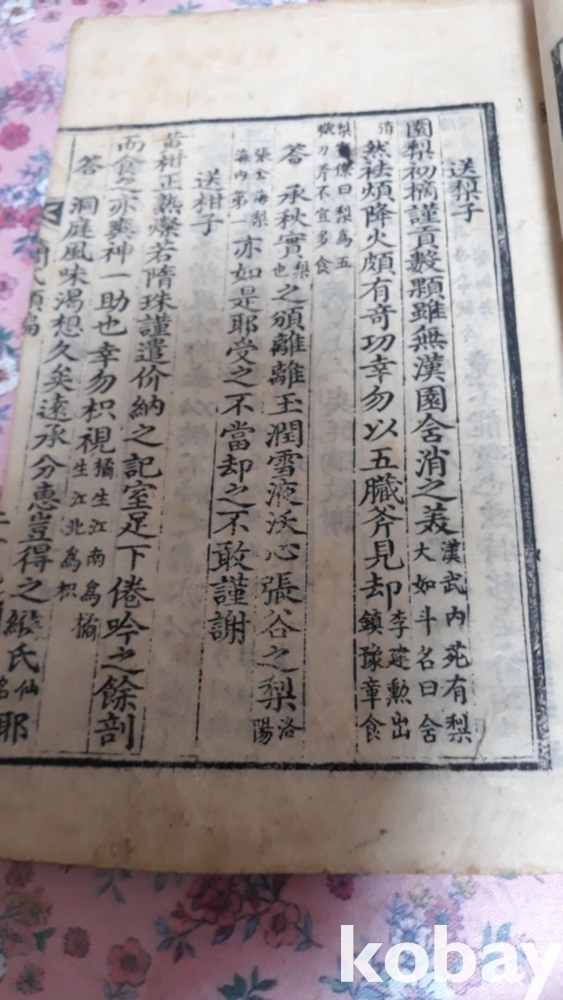 送梨子
園梨初摘謹貢數顆雖無漢園含消之美漢武內苑有梨大如斗名曰含
消然祛煩降火頗有奇功幸勿以五臟斧見却李建勲出鎮豫章食
梨賓僚曰梨爲五臟刀斧不宜多食
答 承秋實梨也之頒離離玉潤雪液沃心張谷之梨洛陽
張公海梨海內第一亦如是耶受之不當却之不敢謹謝
送柑子
黃柑正熟燦若隋珠謹遣价納之記室足下倦吟之餘剖
而食之亦爽神一助也幸勿枳視橘生江南爲橘生江北爲枳
答 洞庭風味渴想久矣遠承分惠豈得之緱氏仙名耶
kobay